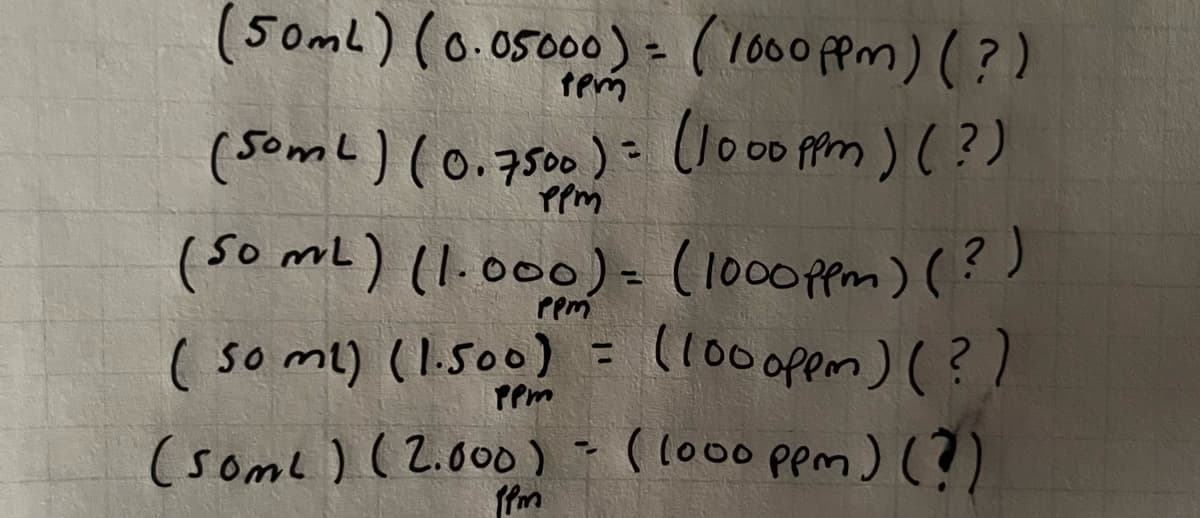 (50mL) (0.05000) = (1000 ppm) (?)
ppm
(50mL) (0.7500) = (1000 ppm) (?)
ppm
(50 mL) (1.000) = (1000ppm) (?)
ppm
(50 mL) (1.500) = (1000ppm) (?)
ppm
(50mL) (2.000) = (1000 ppm) (?)
ppm